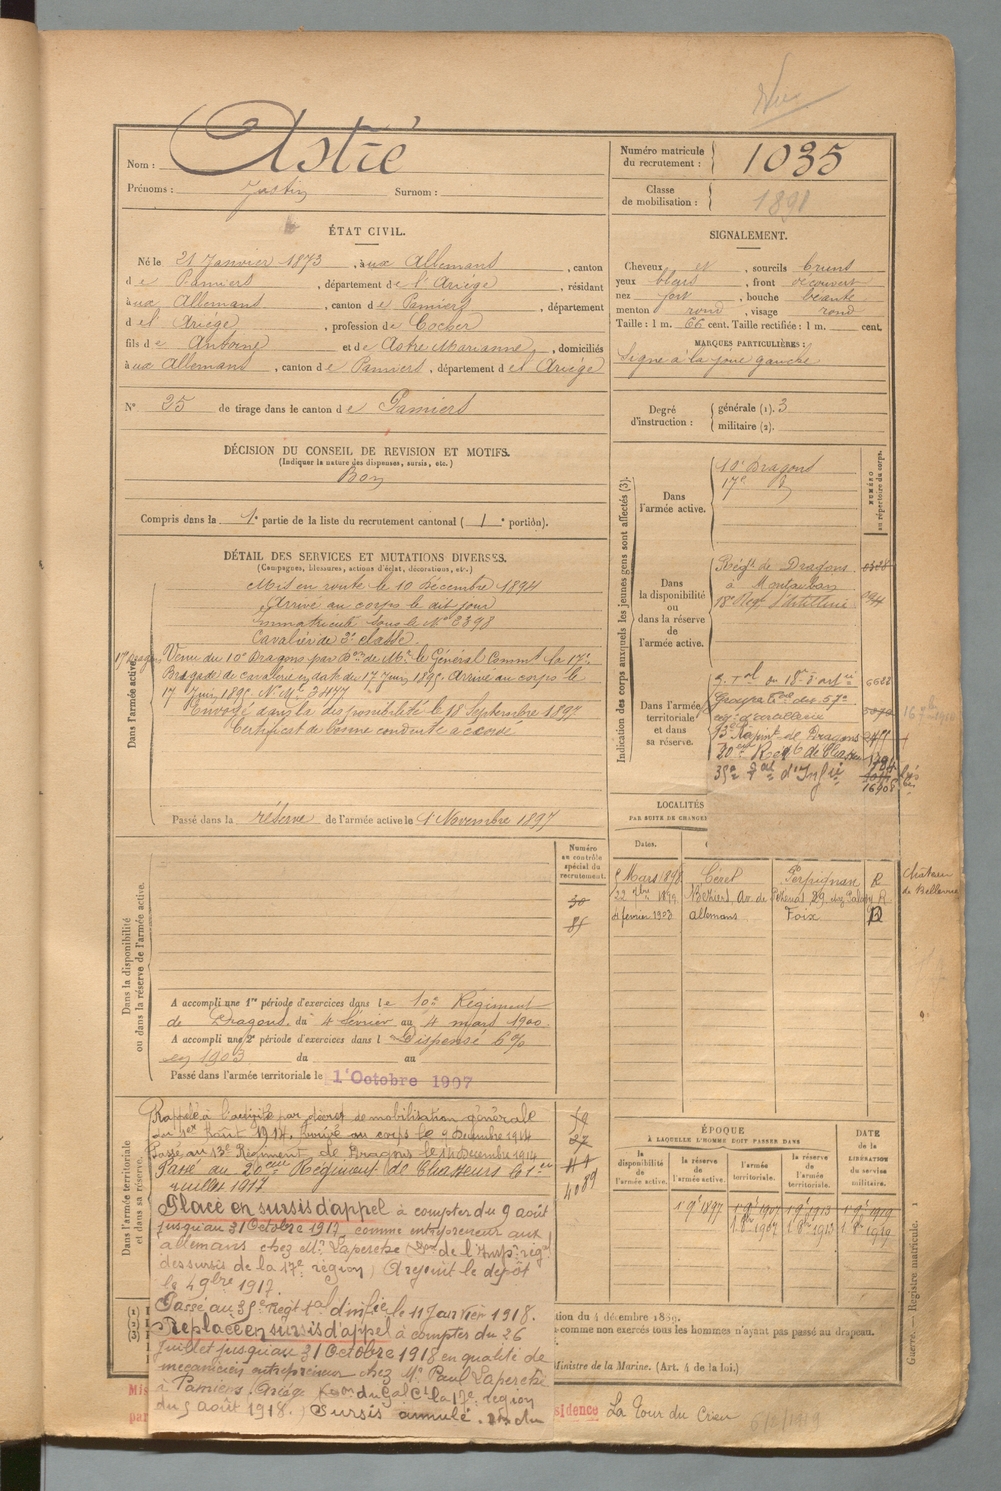 Vu
Nom : Astié
Prénoms : Justin Surnom :
Numéro matricule du recrutement : 1035
Classe de mobilisation : 1891
ÉTAT CIVIL.
Né le 21 Janvier 1873, à ux Allemans, canton
de Pamiers, département de l'Ariége, résidant
à ux Allemans, canton de Pamiers, département
d el Ariége, profession de Cocher
fils de Antoine et de Astre Marianne, domiciliés
à ux Allemans, canton de Pamiers, département d el Ariége
N° 35 de tirage dans le canton de Pamiers
SIGNALEMENT.
Cheveux et, sourcils bruns
yeux bleus, front découvert
nez fort, bouche béante
menton rond, visage rond
Taille : 1 m. 66 cent. Taille rectifiée : 1 m. cent.
MARQUES PARTICULIÈRES :
Signe à la joue gauche
Degré d'instruction : générale (1). 3
militaire (2).
DÉCISION DU CONSEIL DE REVISION ET MOTIFS.
(Indiquer la nature des dispenses, sursis, etc.)
Bon
Compris dans la 1e partie de la liste du recrutement cantonal ( 1e portion).
DÉTAIL DES SERVICES ET MUTATIONS DIVERSES.
(Campagnes, blessures, actions d'éclat, décorations, etc.)
Dans l'armée active.
Mis en route le 10 Décembre 1894
Arrivé au corps le dit jour
immatriculé sous le N° 2398
Cavalier de 2e classe
17e Dragons Venu du 10e Dragons par Bon de Mr. le Général Commt la 17e
Brigade de cavalerie en date du 17 Juin 1895. Arrivé au corps le
17 Juin 1895. N° Mle 3477
Envoyé dans la disponibilité le 18 Septembre 1897
Certificat de bonne conduite accordé
Passé dans la réserve de l'armée active le 1 Novembre 1897
Indication des corps auxquels les jeunes gens sont affectés (3).
NUMÉRO au répertoire du corps.
Dans l'armée active.
10e Dragons
17e d
Dans la disponibilité ou dans la réserve de l'armée active.
Régt de Dragons
à Montauban
18e Regt d'Artillerie
Dans l'armée territoriale et dans sa réserve.
13e Régiment de Dragons
20eme Régt de Chasse
35e d'Infie
16908
LOCALITÉS
PAR SUITE DE CHANGEM
Dates.
Mars 1898 Céret Perpignan R
22 9bre 1899 Béziers, Av. de Pézenas 29 R
4 février 1903 Allemans Foix D
Château de Bellevue
Numéro au contrôle spécial du recrutement.
30
85
Dans la disponibilité ou dans la réserve de l'armée active.
A accompli une 1re période d'exercices dans le 10e Régiment
de Dragons. du 4 février au 4 mars 1900
A accompli une 2e période d'exercices dans l Dispensé 6%
en 1903 du au
Passé dans l'armée territoriale le 1er Octobre 1907
Dans l'armée territoriale et dans sa réserve.
Rappelé à l'activité par décret de mobilisation générale
du 1er Août 1914. Arrivé au corps le 9 Décembre 1914
Passé au 13e Régiment de Dragons le 14 Décembre 1914
Passé au 20eme Régiment de Chasseurs le 1er
Juillet 1917
4089
Placé en sursis d'appel à compter du 9 août
jusqu'au 31 Octobre 1917 comme entrepreneur aux
allemans chez Mr. Laperche (Don de l'Insp. rég.
des sursis de la 17e région) A rejoint le dépôt
le 4 9bre 1917.
Passé au 35e Régt tal d'infie le 11 Janvier 1918.
Replacé en sursis d'appel à compter du 26
Juillet jusqu'au 31 Octobre 1918 en qualité de
mécanicien entrepreneur chez Mr Paul Laperche
à Pamiers. Ariége (Don du Gal Ct la 17e région
du 5 août 1918.) Sursis annulé.
ÉPOQUE
À LAQUELLE L'HOMME DOIT PASSER DANS
la disponibilité de l'armée active.
la réserve de l'armée active.
l'armée territoriale.
la réserve de l'armée territoriale.
DATE de la LIBÉRATION du service militaire.
1 9e 1897 1 9e 1907 1 9e 1913 1 9e 1919
1 8bre 1907 1 8bre 1913 1 8bre 1919
tion du 4 décembre 1889.
comme non exercés tous les hommes n'ayant pas passé au drapeau.
Ministre de la Marine. (Art. 4 de la loi.)
Mis
par
sidence La Tour du Crieu 6/2/1919
Guerre. — Registre matricule. 1